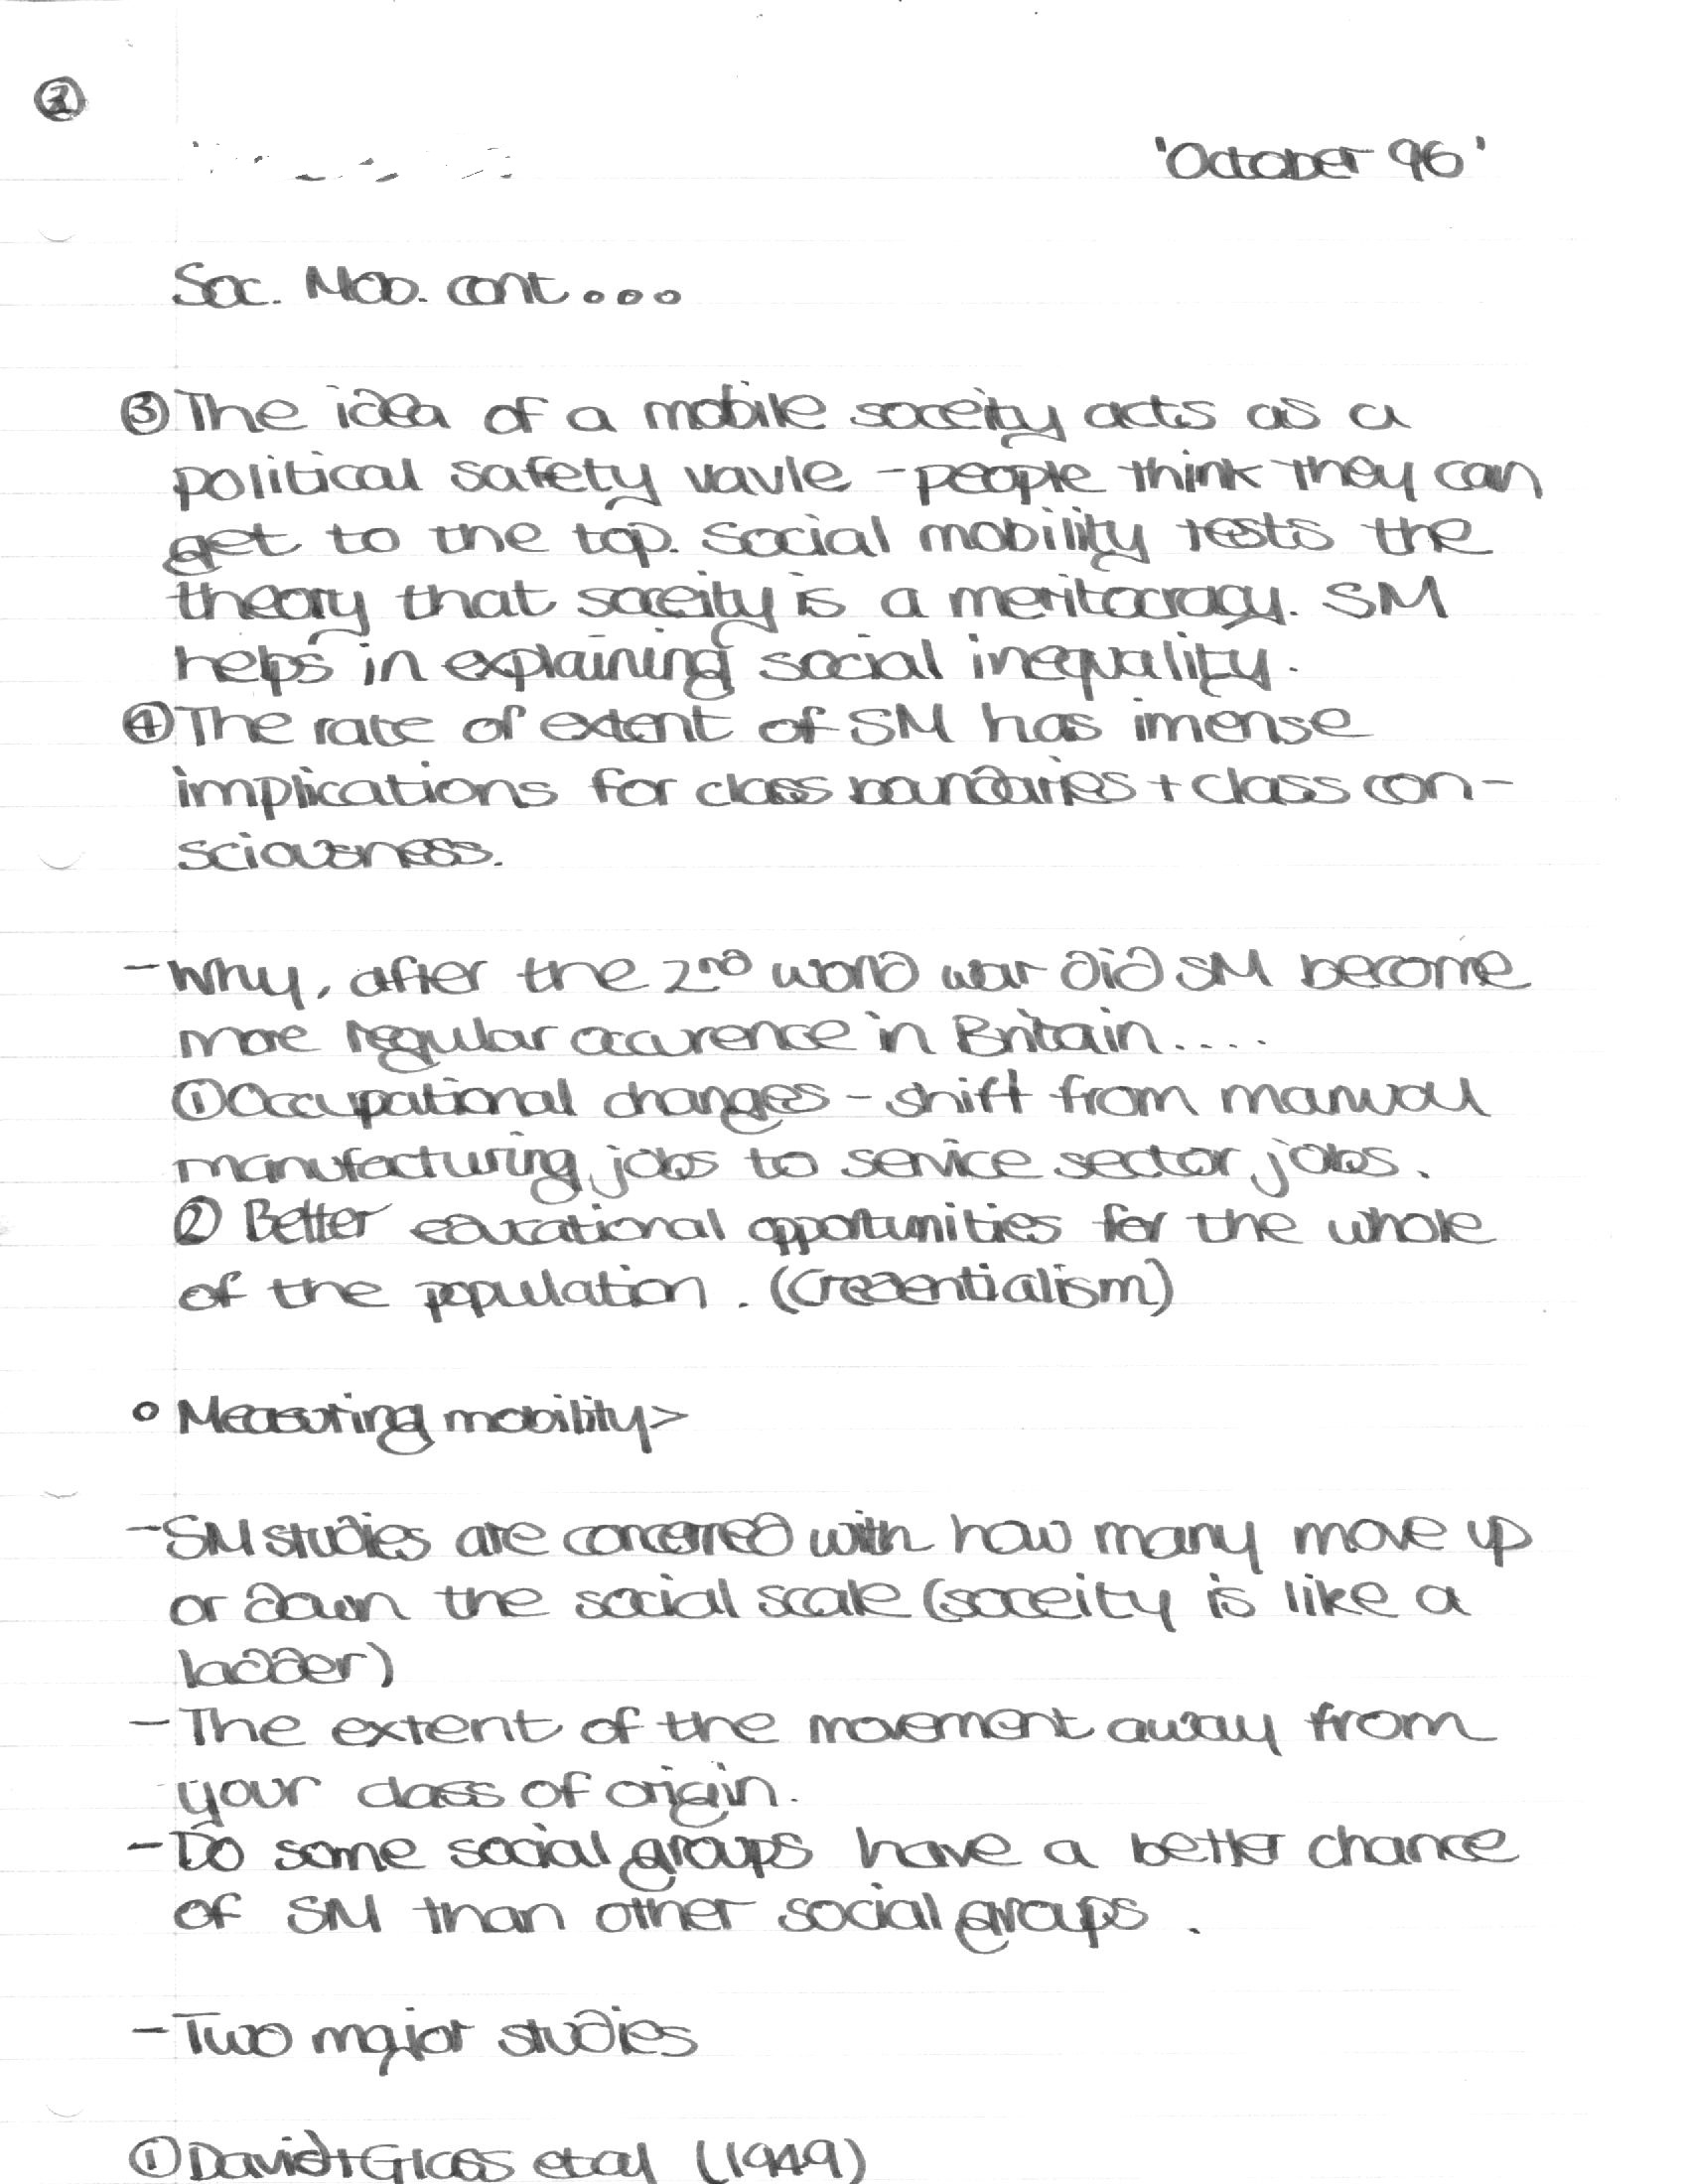 ②
'October 96'
Soc. Mob. cont...
③ The idea of a mobile soceity acts as a
political safety vavle - people think they can
get to the top. Social mobility tests the
theory that soceity is a meritocracy. SM
helps in explaining social inequality.
④ The rate of extent of SM has imense
implications for class boundaries + class con-
sciousness.
- Why, after the 2nd world war did SM become
more regular occurence in Britain....
① Occupational changes - shift from manual
manufacturing jobs to service sector jobs.
② Better educational opportunities for the whole
of the population. (Credentialism)
o Measuring mobility>
- SM studies are concerned with how many move up
or down the social scale (soceity is like a
ladder)
- The extent of the movement away from
your class of origin.
- Do some social groups have a better chance
of SM than other social groups.
- Two major studies
① David + Glass et al (1949)